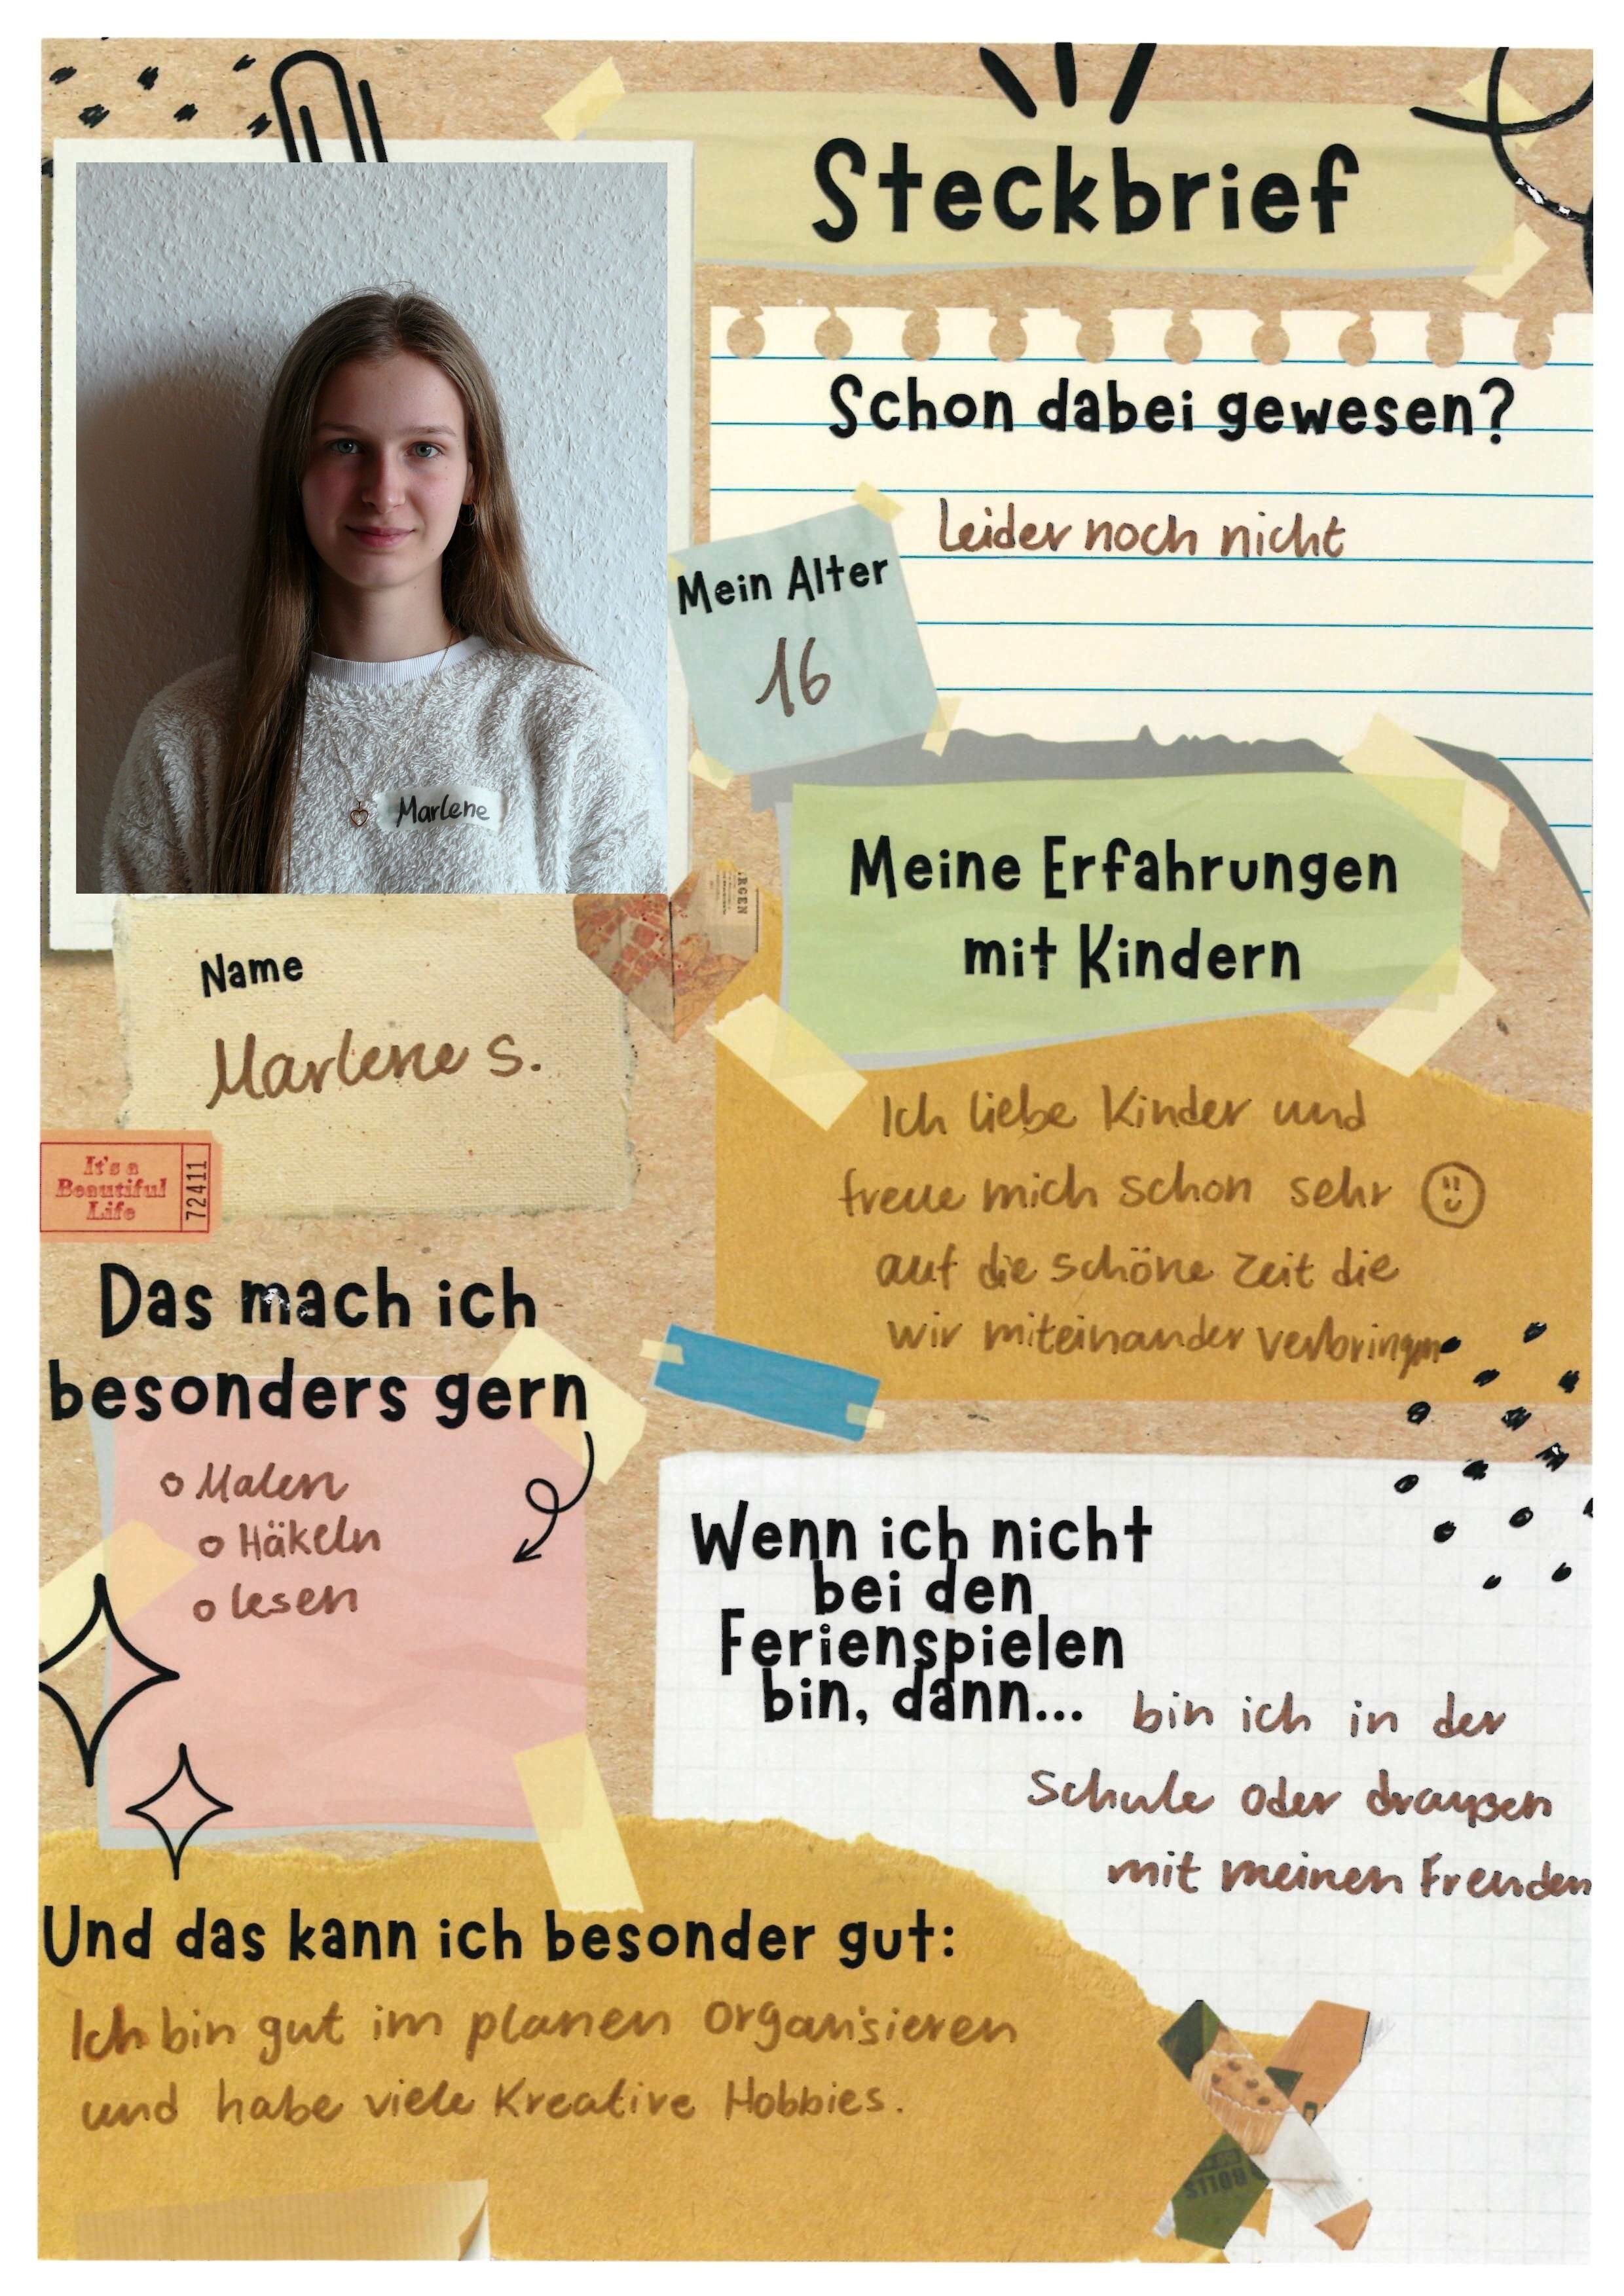 Steckbrief
Schon dabei gewesen?
Leider noch nicht
Mein Alter
16
Marlene
Name
Marlene S.
It's a
Beautiful
Life
72411
Meine Erfahrungen
mit Kindern
Ich liebe Kinder und
freue mich schon sehr
auf die schöne Zeit die
wir miteinander verbringen
Das mach ich
besonders gern
o Malen
o Häkeln
o lesen
Wenn ich nicht
bei den
Ferienspielen
bin, dann... bin ich in der
Schule oder draußen
mit meinen Freuden
Und das kann ich besonder gut:
Ich bin gut im planen organisieren
und habe viele Kreative Hobbies.
ROLLS